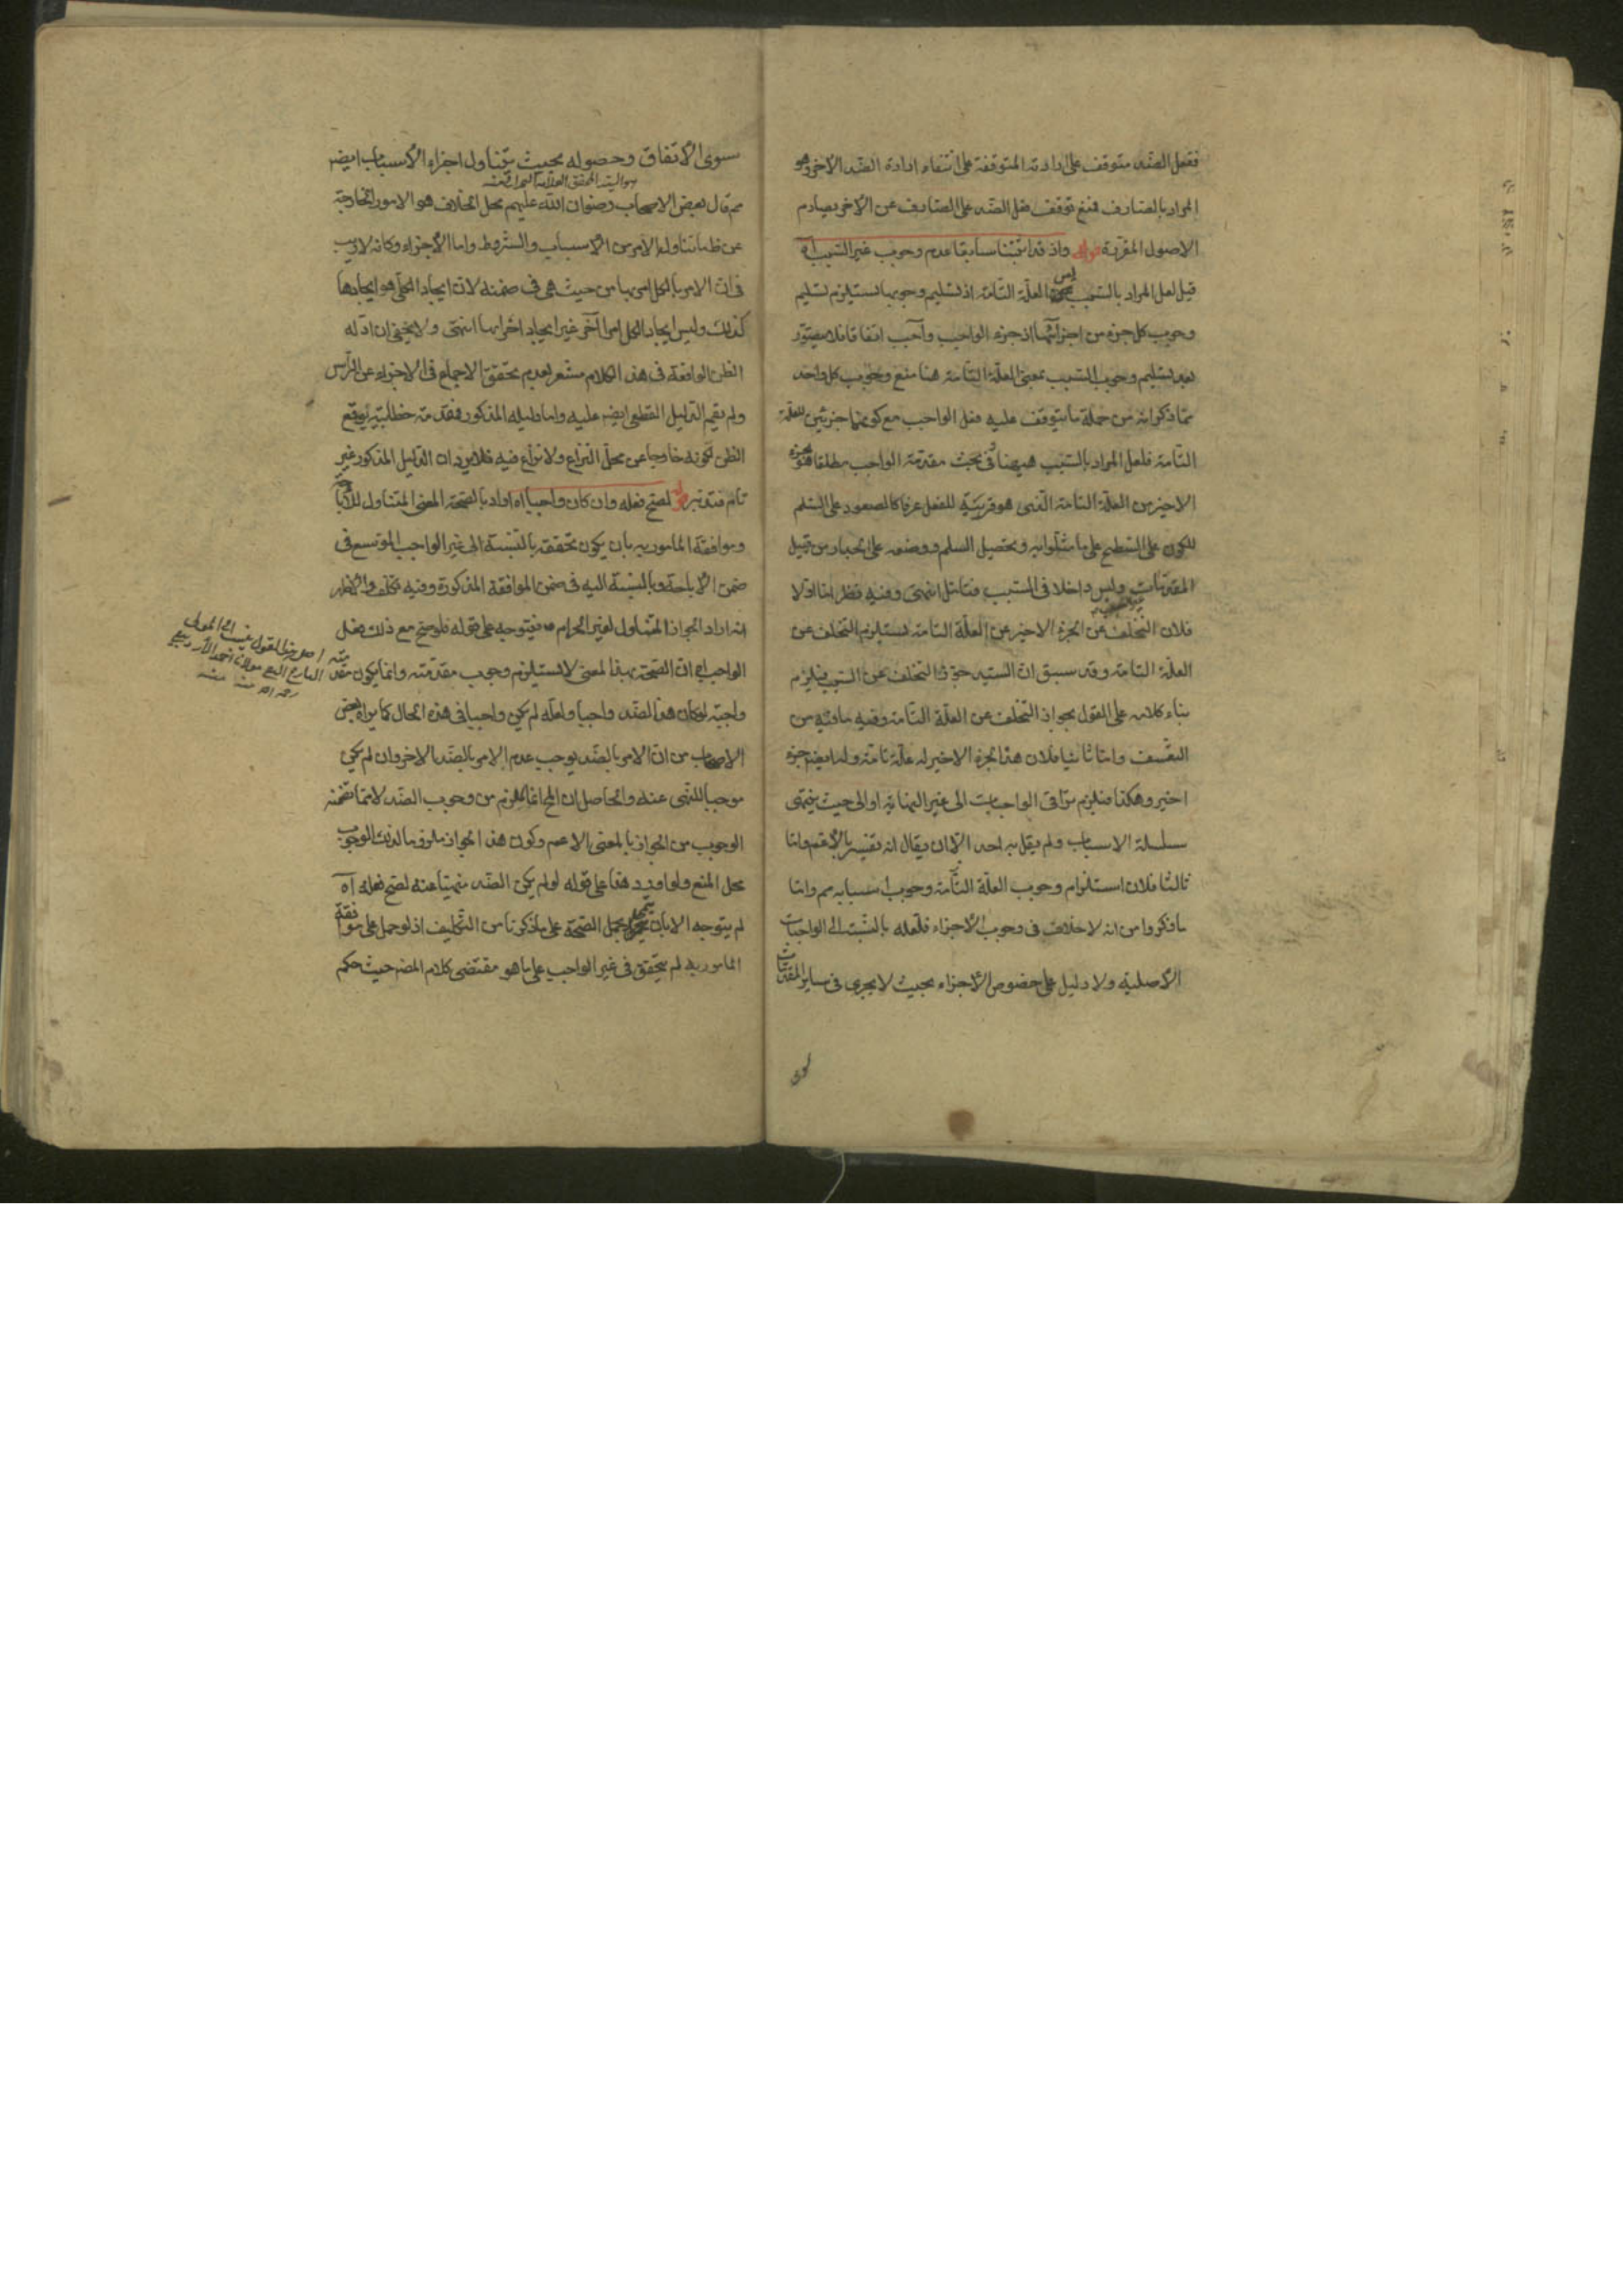 ففعل الضد متوقف على ارادته المتوقفة على انتفاء ارادة الضد الاخر وهو
المراد بالصارف فمنع توقف فعل الضد على الصارف عن الاخر يصادم
الاصول المقررة قوله واذ قد اثبتنا سابقا عدم وجوب غير السبب آه
قيل لعل المراد بالسبب ليس العلة التامة اذ تسليم وجوبها يستلزم تسليم
وجوب كل جزء من اجزائها اذ جزء الواجب واجب اتفاقا فلا يتصور
بعد تسليم وجوب السبب بمعنى العلة التامة هنا منع وجوب كل واحد
مما ذكر انه من جملة ما يتوقف عليه فعل الواجب مع كونهما جزئين للعلة
التامة فلعل المراد بالسبب هيهنا وفي بحث مقدمة الواجب مطلقا هو الجزء
الاخير من العلة التامة الذي هو قريبة للفعل عرفا كالصعود على السلم
للكون على السطح على ما مثلوا به وتحصيل السلم ووضعه على الجدار من قبيل
المقدمات وليس داخلا في السبب فتامل انتهى وفيه نظر اما اولا
فلان التخلف عن الجزء الاخير من العلة التامة يستلزم التخلف عن
العلة التامة وقد سبق ان السيد جوز التخلف عن السبب فيلزم
بناء كلامه على القول بجواز التخلف عن العلة التامة وفيه ما فيه من
التعسف واما ثانيا فلان هذا الجزء الاخير له علة تامة ولها ايضا جزء
اخير وهكذا فيلزم ترقي الواجبات الى غير النهاية او الى حيث ينتهي
سلسلة الاسباب ولم يقل به احد الا ان يقال انه تفسير بالاعم واما
ثالثا فلان استلزام وجوب العلة التامة وجوب اسبابه مم واما
ما ذكروا من انه لا خلاف في وجوب الاجزاء فلعله بالنسبة الى الواجبات
الاصلية ولا دليل على خصوص الاجزاء بحيث لا يجري في ساير المقدمات
سوى
سوى الاتفاق وحصوله بحيث يتناول اجزاء الاسباب ايضا
هو السيد المحقق العلامة منه
مم قال بعض الاصحاب رضوان الله عليهم محل الخلاف هو الامور الخارجة
عن ظما تناوله الامر من الاسباب والشروط واما الاجزاء وكانه لا ريب
في ان الامر بالكل امر بها من حيث هي في ضمنه لان ايجاد الكل هو ايجادها
كذلك وليس ايجاد الكل امرا آخر غير ايجاد اجزائها انتهى ولا يخفى ان ادلة
الظن الواقعة في هذا الكلام مشعر بعدم تحقق الاجماع في الاجزاء عن الراس
ولم يقم الدليل القطعي ايضا عليه واما دليله المذكور فمقدمة خطابية يوقع
الظن لكونه خارجا عن محل النزاع ولا نزاع فيه فلا يرد ان الدليل المذكور غير
تام فتدبر قوله لصح فعله وان كان واجبا آه اراد بالصحة المعنى المتناول للاباحة
وموافقة المامور به بان يكون تحققه بالنسبة الى غير الواجب الموسع في
ضمن الاباحة وبالنسبة اليه في ضمن الموافقة المذكورة وفيه تكلف والاظهر
انه اراد الجواز المتناول لغير الحرام فيتوجه على قوله فلو صح مع ذلك فعل
الواجب ان الصحة بهذا المعنى لا يستلزم وجوب مقدمته وانما يكون مقدمته
واجبة لو كان هذا الضد واجبا ولعله لم يكن واجبا في هذه الحال كما يراه بعض
الاصحاب من ان الامر بالضد يوجب عدم الامر بالضد الاخر وان لم يكن
موجبا للنهي عنه والحاصل ان المح انما يلزم من وجوب الضد لا مما تضمنه
الوجوب من الجواز بالمعنى الاعم وكون هذا الجواز ملزوما لذلك الوجوب
محل المنع ولو اورد هذا على قوله لو لم يكن الضد منهيا عنه لصح فعله آه
لم يتوجه الا بان يحمل الصحة على ما ذكرنا من التكليف اذ لو حمل على موافقة
المامور به لم يتحقق في غير الواجب على ما هو مقتضى كلام المص حيث حكم
اصل هذا القول ينسب الى المولى
البارع مولانا احمد الاردبيلي
رحمه الله منه